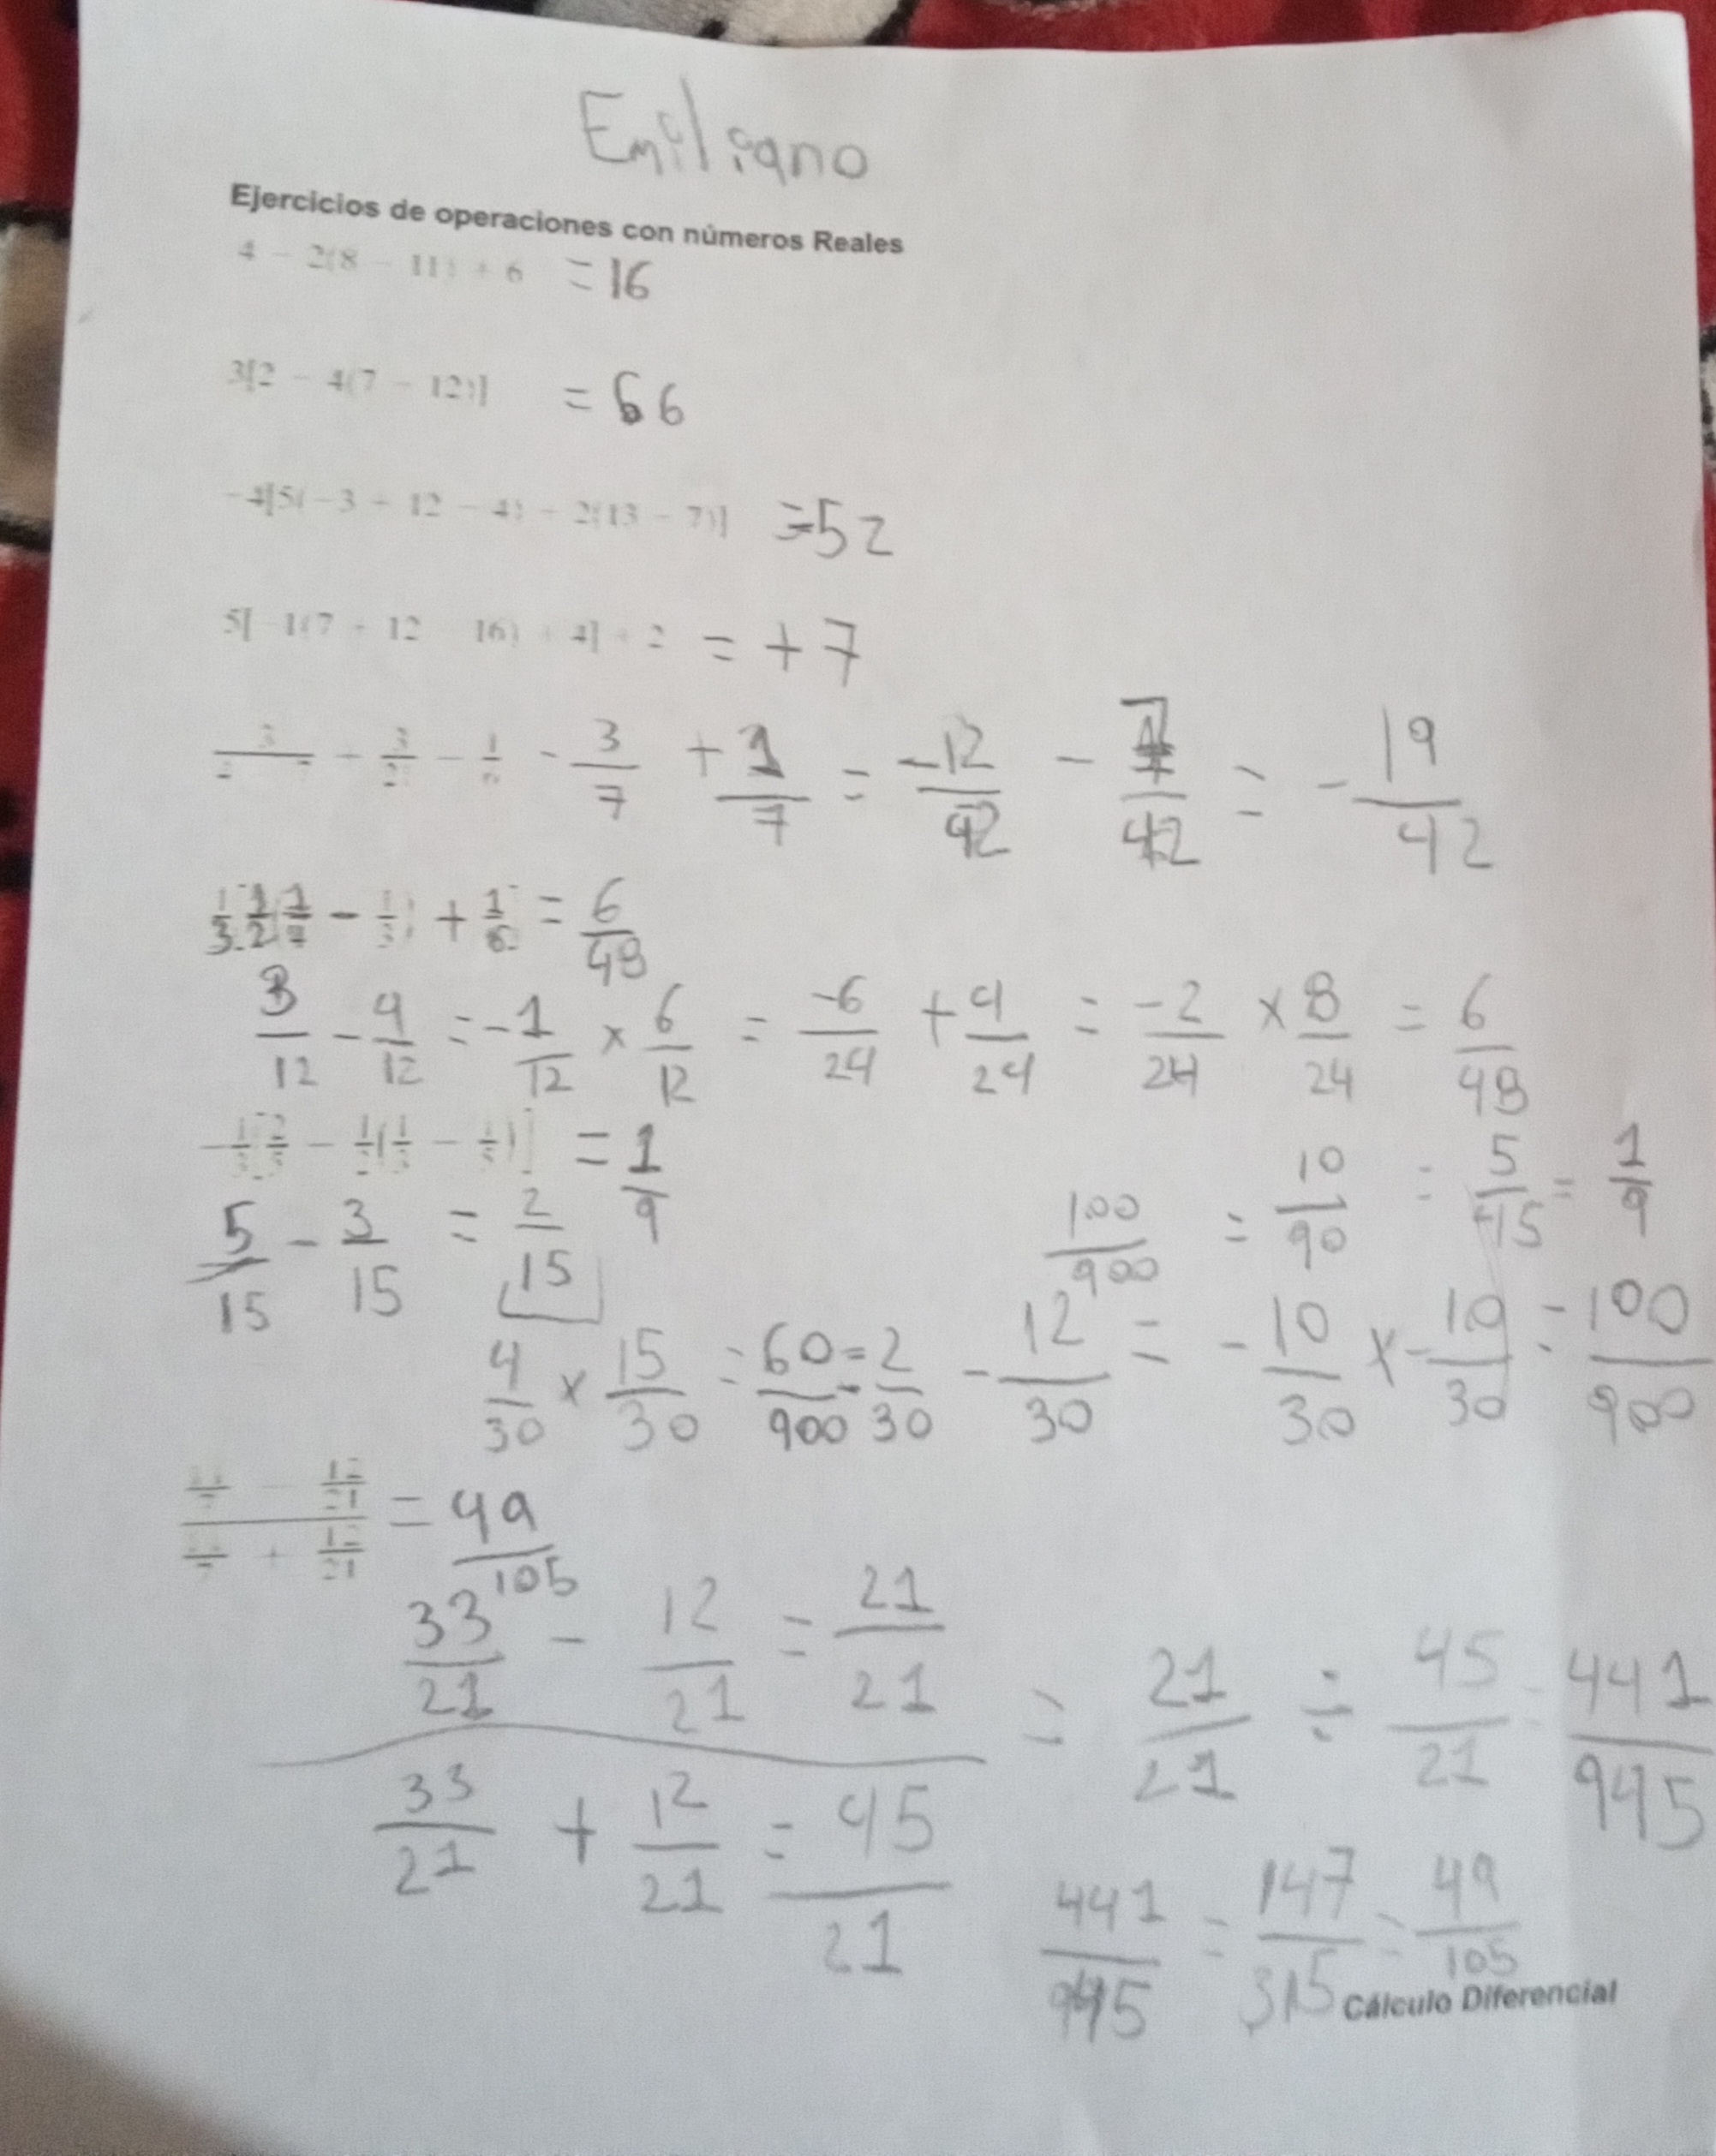 Emiliano
Ejercicios de operaciones con números Reales
4 - 2(8 - 11) + 6 = 16
3[2 - 4(7 - 12)] = 66
-4[5(-3 + 12 - 4) + 2(13 - 7)] = 52
5[ 1(7 - 12 16) + 4] + 2 = + 7
- 3/7 + 1/7 = -12/42 - 7/42 = - 19/42
1/3 1/2 - 1/3) + 1/6 = 6/48
3/12 - 4/12 = - 1/12 × 6/12 = -6/24 + 4/24 = -2/24 × 8/24 = 6/48
= 1/9
5/15 - 3/15 = 2/15
100/900 = 10/90 = 5/45 = 1/9
4/30 × 15/30 = 60/900 = 2/30 - 12/30 = - 10/30 × - 10/30 = 100/900
12/21 12/21 = 49/105
33/21 - 12/21 = 21/21
33/21 + 12/21 = 45/21
= 21/21 ÷ 45/21 = 441/945
441/945 = 147/315 = 49/105
Cálculo Diferencial